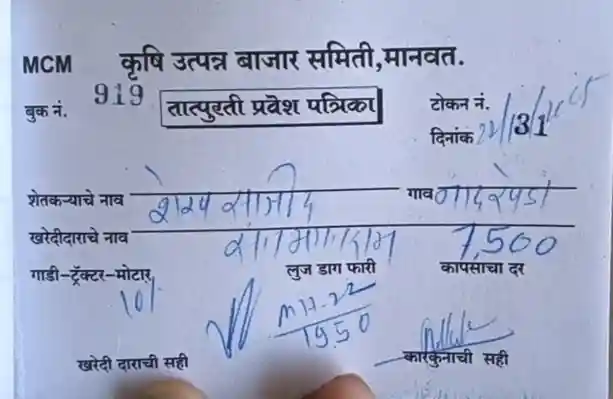 MCM कृषि उत्पन्न बाजार समिती,मानवत.
बुक नं. 919 तात्पुरती प्रवेश पत्रिका टोकन नं.
दिनांक
शेतकऱ्याचे नाव शेख साजीद गाव नादरखेडा
खरेदीदाराचे नाव 7,500
गाडी-ट्रॅक्टर-मोटार लुज डाग फारी कापसाचा दर
101
MH-22
1950
खरेदी दाराची सही कारकुनाची सही